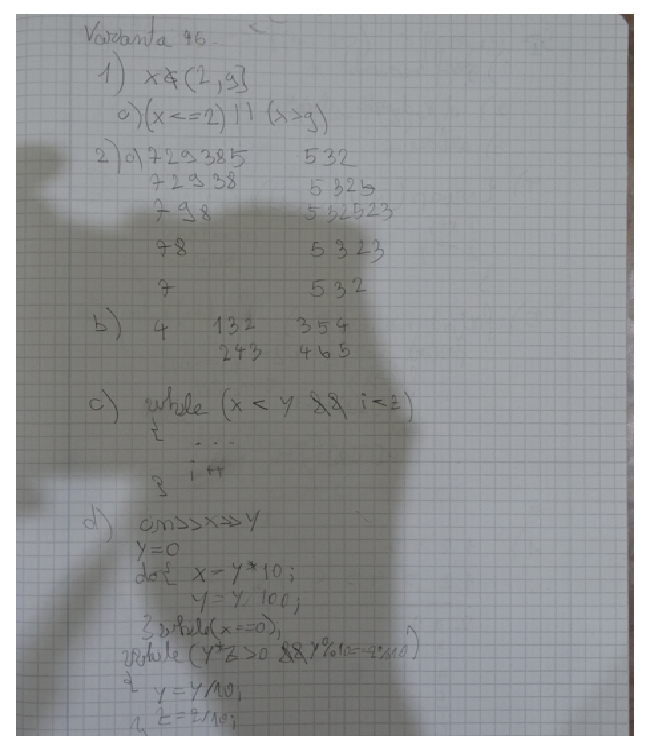 Varianta 96
1) x∉(2,9]
a) (x<=2) || (x>9)
2) a) 729385 532
72938 5325
798 532523
78 5323
7 532
b) 4 132 354
243 465
c) while (x < y && i<z)
{ ...
i++
}
d) cin>>x>>y
y=0
do{ x= y*10;
y = y/100;
}while(x==0);
while (y*z>0 &&
{ y=y/10;
z=z/10;